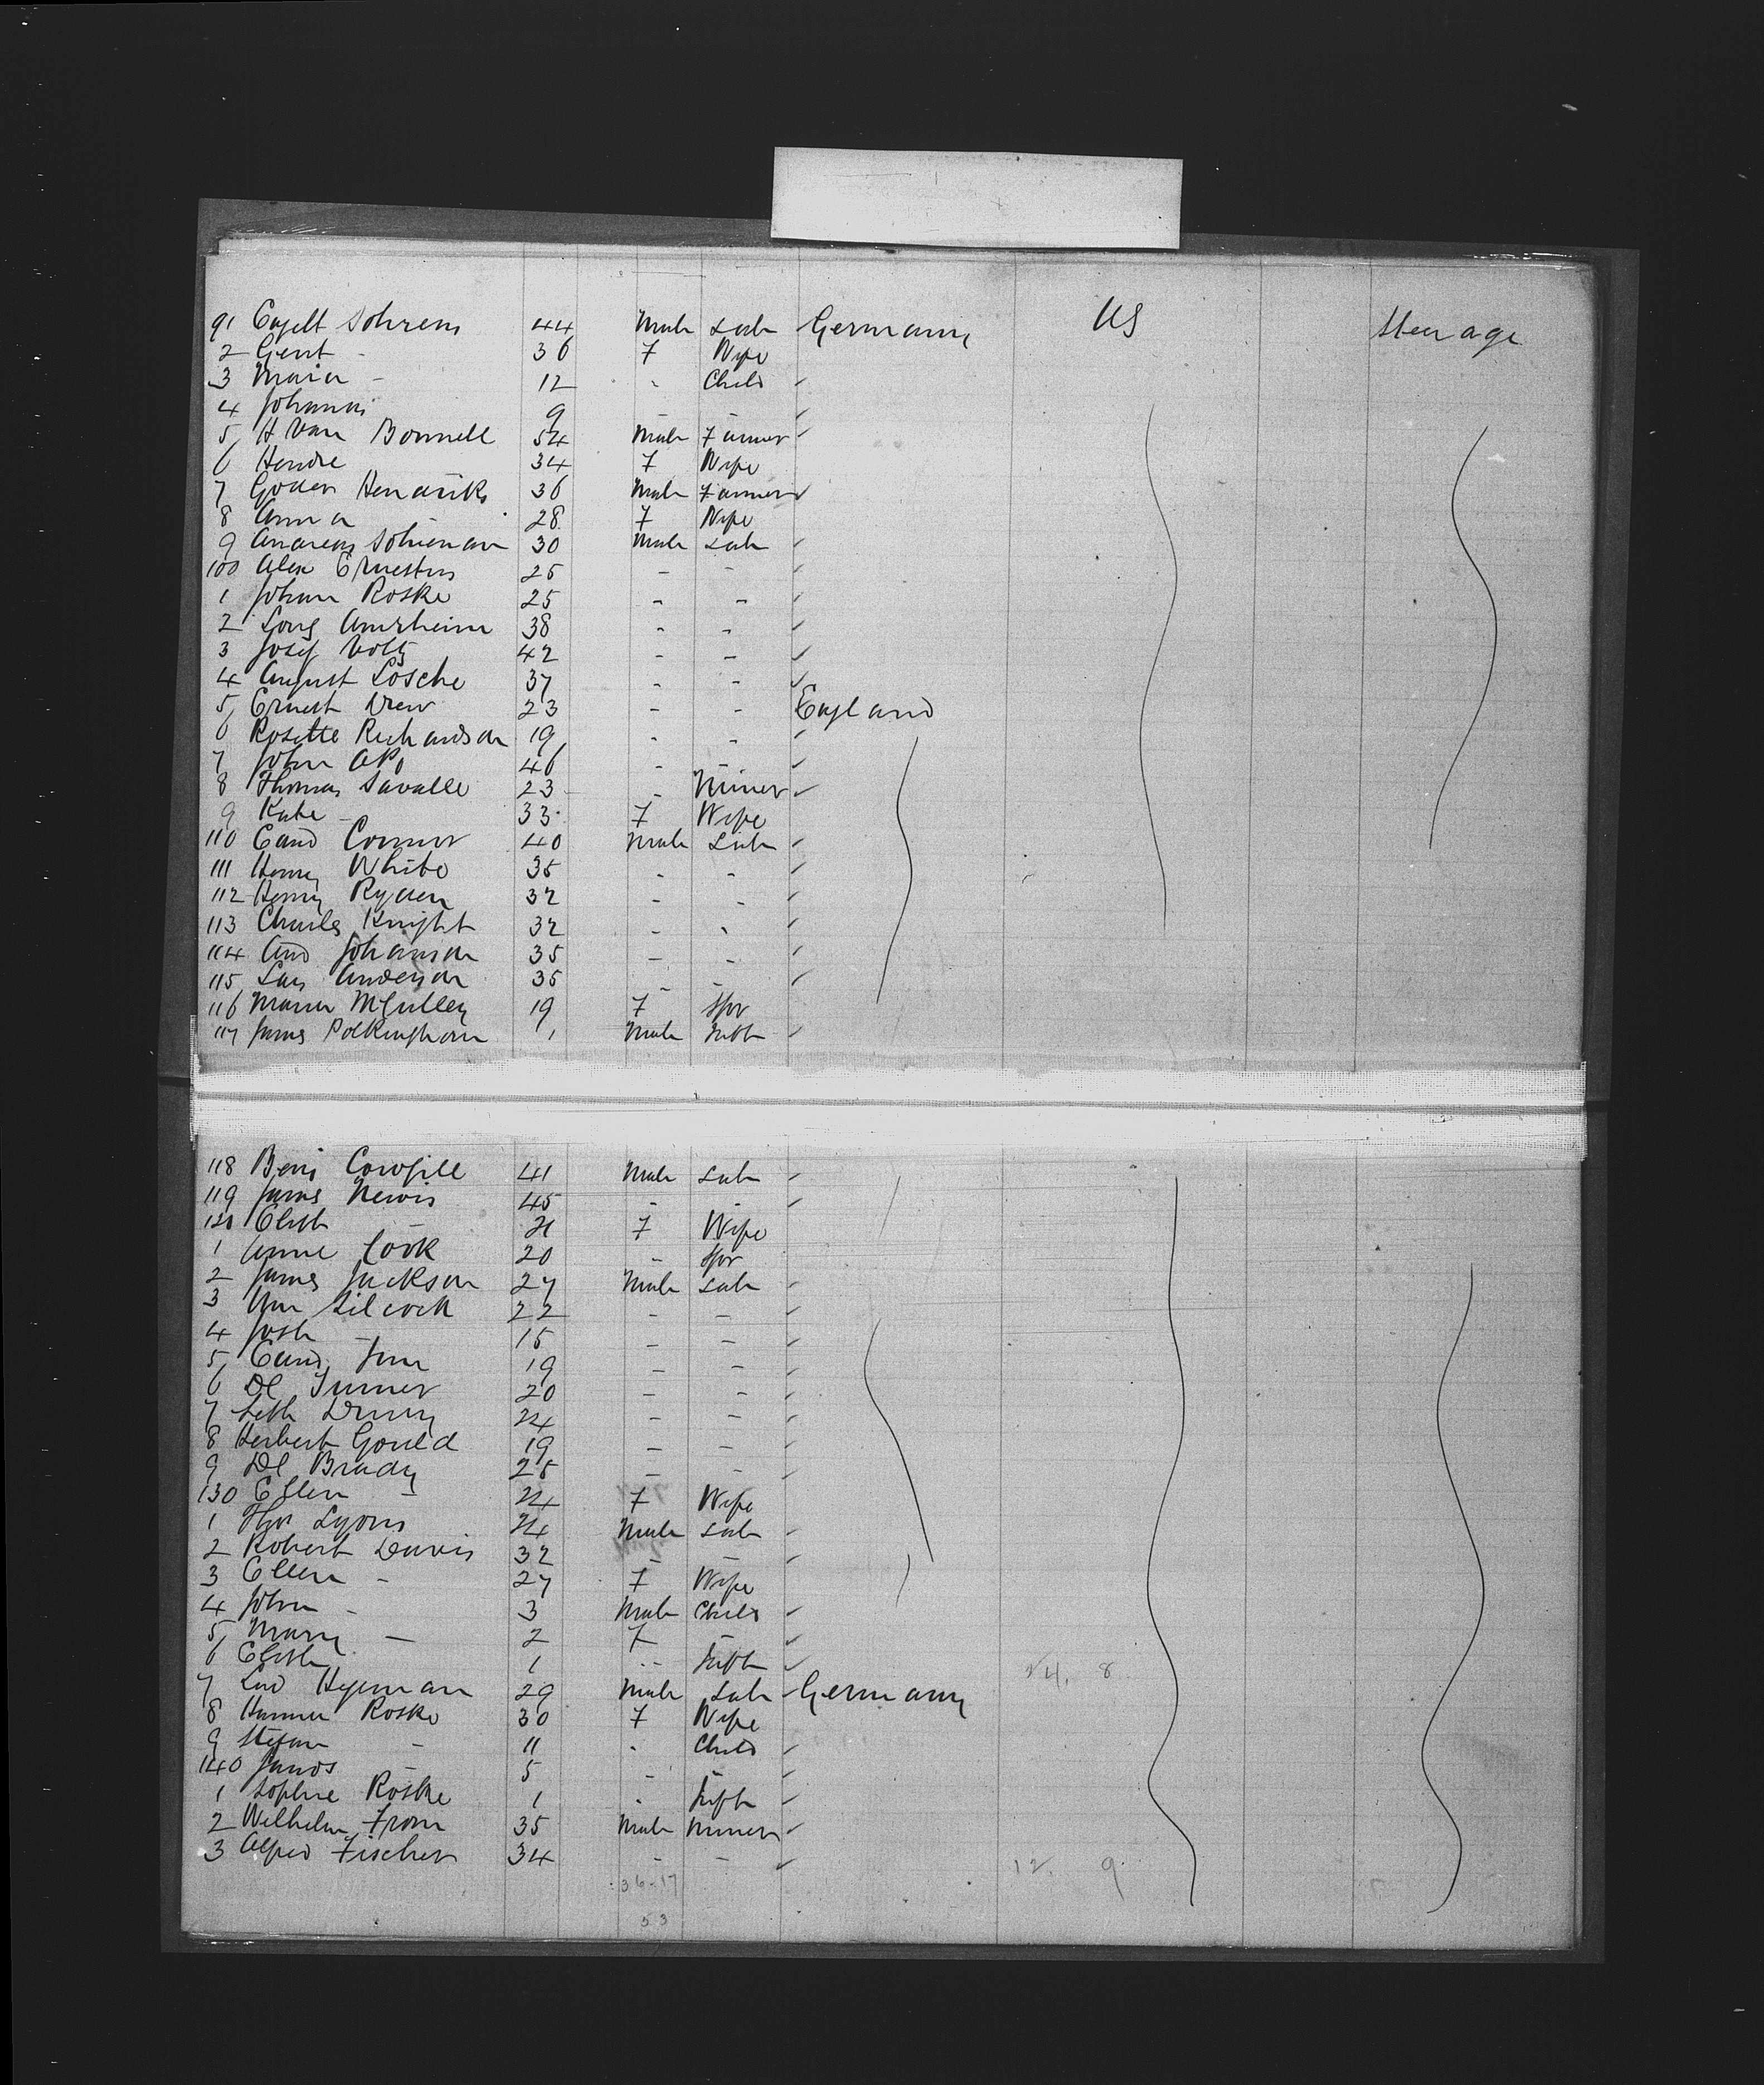 91 Engelt Sohrens 44 Male Lab Germany US Steerage
2 Gent - 36 F Wife
3 Maria - 12 - Child
4 Johannes 9 - -
5 H Van Bonnell 54 Male Farmer
6 Hendre 34 F Wife
7 Hendriks 36 Male Farmer
8 Anna 28 F Wife
9 Andreas 30 Male Lab
100 Alex Ernestus 25 - -
1 Johann Roske 25 - -
2 Amrheim 38 - -
3 Josef Voltz 42 - -
4 August Losche 37 - -
5 Ernest Drew 23 - - England
6 Rosette Richardson 19 - -
7 John 46 - -
8 Thomas Savalle 23 - Miner
9 Kate - 33 F Wife
110 Connor 40 Male Lab
111 Henry White 35 - -
112 Henry Ryden 32 - -
113 Charles Knight 32 - -
114 And Johanson 35 - -
115 Lars Anderson 35 - -
116 McCulley 19 F Spr
117 James Polkinghorn 1 Male Inft
118 Benj Cowgill 41 Male Lab
119 James 45 - -
120 Elisth 21 F Wife
1 Anne Cook 20 - Spr
2 James Jackson 27 Male Lab
3 Wm Silcock 22 - -
4 Josh - 15 - -
5 19 - -
6 Dl Turner 20 - -
7 Seth Drury 24 - -
8 Herbert Gould 19 - -
9 Dl Brady 25 - -
130 Ellen - 24 F Wife
1 Thos Lyons 24 Male Lab
2 Robert Davis 32 - -
3 Ellen - 27 F Wife
4 John - 3 Male Child
5 Mary - 2 F -
6 Elisth 1 - Inft 24. 8
7 Lud Hyeman 29 Male Lab Germany
8 Roske 30 F Wife
9 Stefan - 11 - Child
140 Janos - 5 - -
1 Sophie Roske 1 - Inft
2 Wilhelm From 35 Male Miner
3 Alfred Fischer 34 - - 12. 9
36-17
53